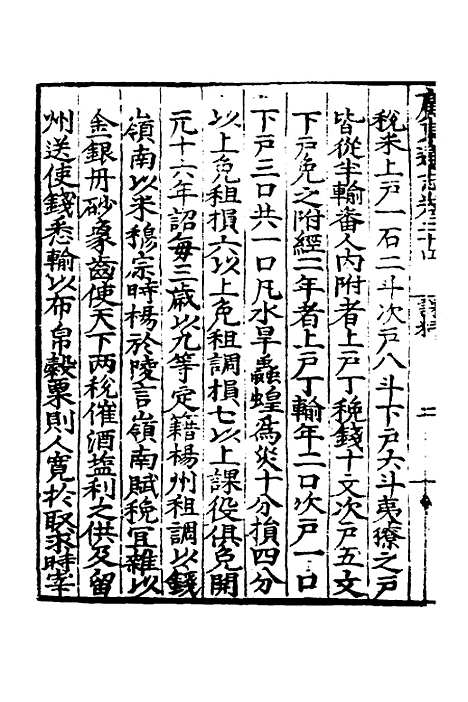 稅米上戸一石二斗次戸八斗下戸六斗夷獠之戸
皆從半輸畨人內附者上戸丁稅錢十文次戸五文
下戸免之附經二年者上戸丁輸羊二口次戸一口
下戸三口共一口凡水旱蟲蝗爲災十分損四分
以上免租損六以上免租調損七以上課役俱免開
元十六年詔每三歲以九等定籍楊州租調以錢
嶺南以米穆宗時楊於陵言嶺南賦稅宜雜以
金銀丹砂象齒使天下两稅催酒盐利之供及留
州送使錢悉輸以布帛穀粟則人寛於取求時宰